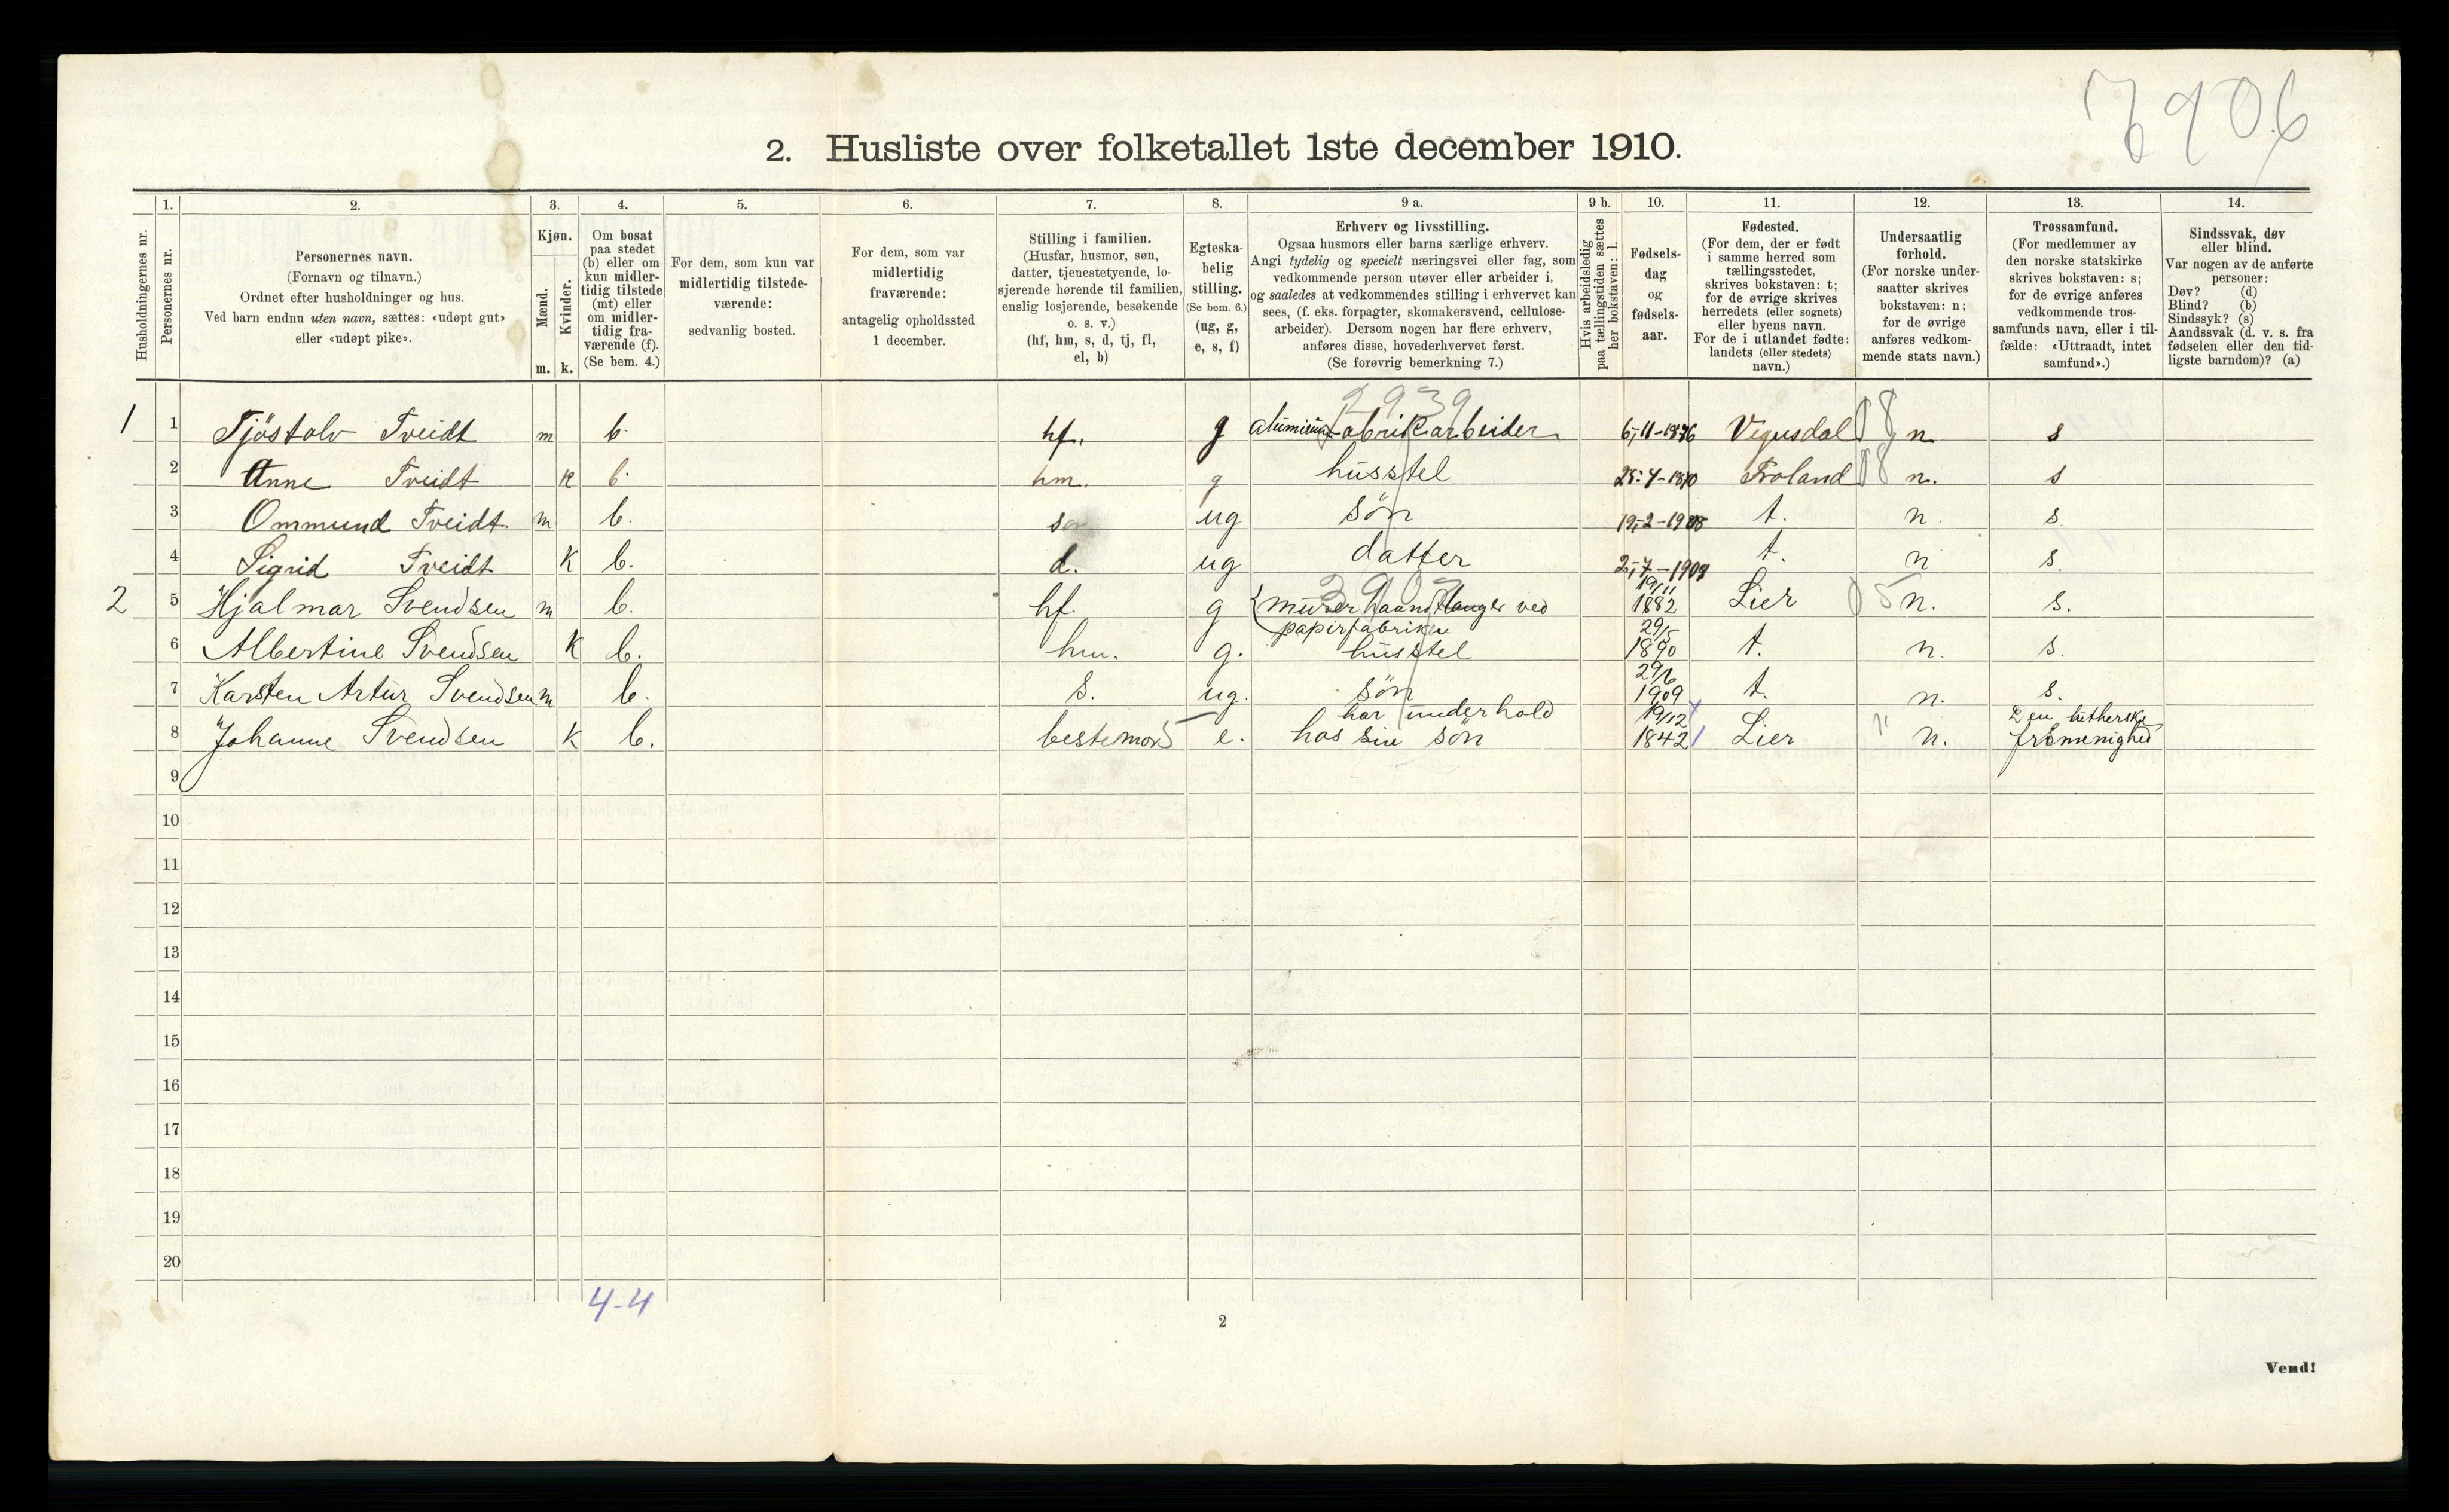 7906
2. Husliste over folketallet 1ste december 1910.
Husholdningernes nr.
1.
Personernes nr.
2.
Personernes navn.
(Fornavn og tilnavn.)
Ordnet efter husholdninger og hus.
Ved barn endnu uten navn, sættes: «udøpt gut»
eller «udøpt pike».
3.
Kjøn.
Mænd.
Kvinder.
m. k.
4.
Om bosat
paa stedet
(b) eller om
kun midler-
tidig tilstede
(mt) eller
om midler-
tidig fra-
værende (f).
(Se bem. 4.)
5.
For dem, som kun var
midlertidig tilstede-
værende:
sedvanlig bosted.
6.
For dem, som var
midlertidig
fraværende:
antagelig opholdssted
1 december.
7.
Stilling i familien.
(Husfar, husmor, søn,
datter, tjenestetyende, lo-
sjerende hørende til familien,
enslig losjerende, besøkende
o. s. v.)
(hf, hm, s, d, tj, fl,
el, b)
8.
Egteska-
belig
stilling.
(Se bem. 6.)
(ug, g,
e, s, f)
9 a.
Erhverv og livsstilling.
Ogsaa husmors eller barns særlige erhverv.
Angi tydelig og specielt næringsvei eller fag, som
vedkommende person utøver eller arbeider i,
og saaledes at vedkommendes stilling i erhvervet kan
sees, (f. eks. forpagter, skomakersvend, cellulose-
arbeider). Dersom nogen har flere erhverv,
anføres disse, hovederhvervet først.
(Se forøvrig bemerkning 7.)
9 b.
Hvis arbeidsledig
paa tællingstiden sættes
her bokstaven: l.
10.
Fødsels-
dag
og
fødsels-
aar.
11.
Fødested.
(For dem, der er født
i samme herred som
tællingsstedet,
skrives bokstaven: t;
for de øvrige skrives
herredets (eller sognets)
eller byens navn.
For de i utlandet fødte:
landets (eller stedets)
navn.)
12.
Undersaatlig
forhold.
(For norske under-
saatter skrives
bokstaven: n;
for de øvrige
anføres vedkom-
mende stats navn.)
13.
Trossamfund.
(For medlemmer av
den norske statskirke
skrives bokstaven: s;
for de øvrige anføres
vedkommende tros-
samfunds navn, eller i til-
fælde: «Uttraadt, intet
samfund».)
14.
Sindssvak, døv
eller blind.
Var nogen av de anførte
personer:
Døv? (d)
Blind? (b)
Sindssyk? (s)
Aandssvak (d. v. s. fra
fødselen eller den tid-
ligste barndom)? (a)
2939
1 1 Tjöstolv Tveidt m b. hf. g aluminiumfabrikarbeider 6,-11-1876 Vegusdal 08 n s
2 Anne Tveidt k b. hm. g husstel 25.-4-1870 Froland 08 n. s
3 Ommund Tveidt m b. s ug sön 19,-2-1908 t. n s
4 Sigrid Tveidt K b. d. ug datter 2,-7-1909 t. n s.
3907
2 5 Hjalmar Svendsen m b. hf. g murerhaandlanger ved papirfabriken 19/11 1882 Lier 05 n. s.
6 Albertine Svendsen K b. hm. g. husstel 29/5 1890 t. n. s.
7 Karsten Artur Svendsen m b. s. ug. sön 29/6 1909 t. n. s.
8 Johanne Svendsen K b. bestemor e. har underhold hos sin sön 19/12 1842 Lier " n. Den lutherske frimenighed
9
10
11
12
13
14
15
16
17
18
19
20
4-4
2
Vend!